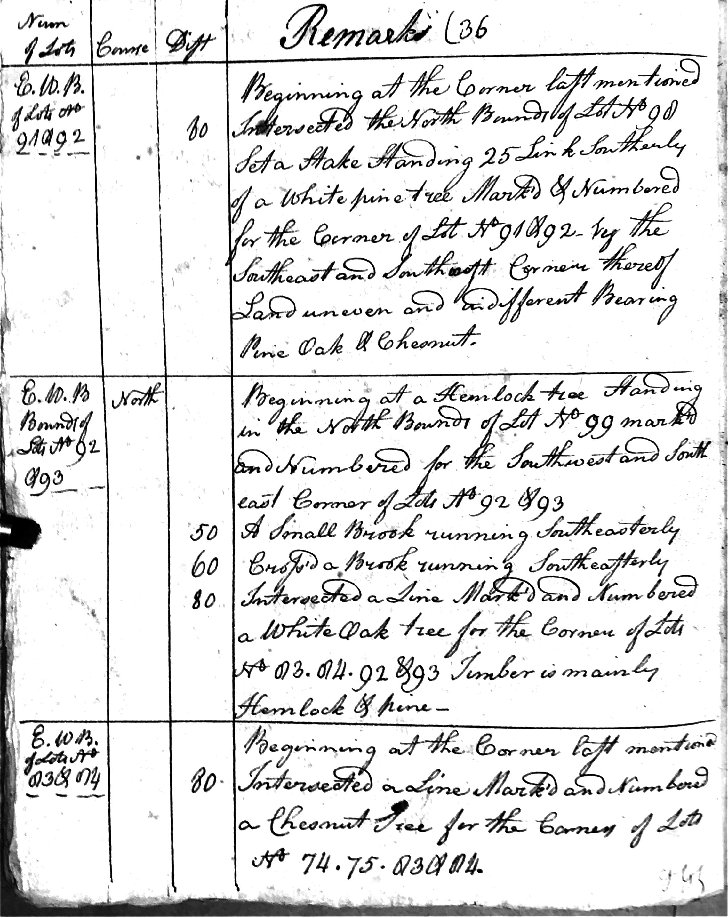 Num Remarks (36
of Lots Course Dist
E. W. B. Beginning at the Corner last mentioned
of Lots No 80 Intersected the North Bounds of Lot No 98
91 & 92 Set a Stake Standing 25 Link Southerly
of a White pine tree Mark'd & Numbered
for the Corner of Lot No 91 & 92 - by the
Southeast and Southwest Corner thereof
Land uneven and indifferent Bearing
Pine Oak & Chesnut.
E. W. B North Beginning at a Hemlock tree Standing
Bounds of in the North Bounds of Lot No 99 mark'd
Lots No 92 and Numbered for the Southwest and South
& 93 east Corner of Lots No 92 & 93
50 A Small Brook running Southeasterly
60 Cross'd a Brook running Southeasterly
80 Intersected a Line Mark'd and Numbered
a White Oak tree for the Corner of Lots
No 83. 84. 92 & 93 Timber is mainly
Hemlock & pine -
E. W. B. Beginning at the Corner last mentioned
of Lots No 80 Intersected a Line Mark'd and Numbered
83 & 84 a Chesnut Tree for the Corner of Lots
No 74. 75. 83 & 84.